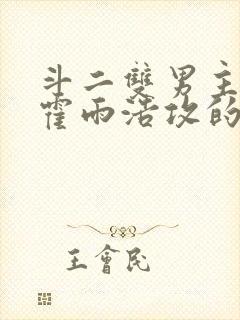 斗二雙男主
霍雨浩攻的
王會民